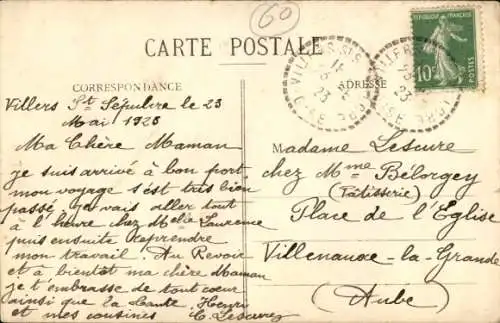 60
CARTE POSTALE
REPUBLIQUE FRANÇAISE
10c
POSTES
VILLERS-St-S
OISE
23
CORRESPONDANCE
ADRESSE
Villers St Sépulcre le 23
Mai 1923
Ma Chère Maman
je suis arrivé à bon port
mon voyage s'est très bien
passé, je vais aller tout
à l'heure chez Melle Laurence
puis ensuite reprendre
mon travail. Au Revoir
et à bientôt ma chère Maman
je t'embrasse de tout coeur
ainsi que la tante, Henri
et mes cousines
Madame Lescure
chez Mme Bélorgey
(Pâtisserie)
Place de l'Eglise
Villenauxe-la-Grande
(Aube)